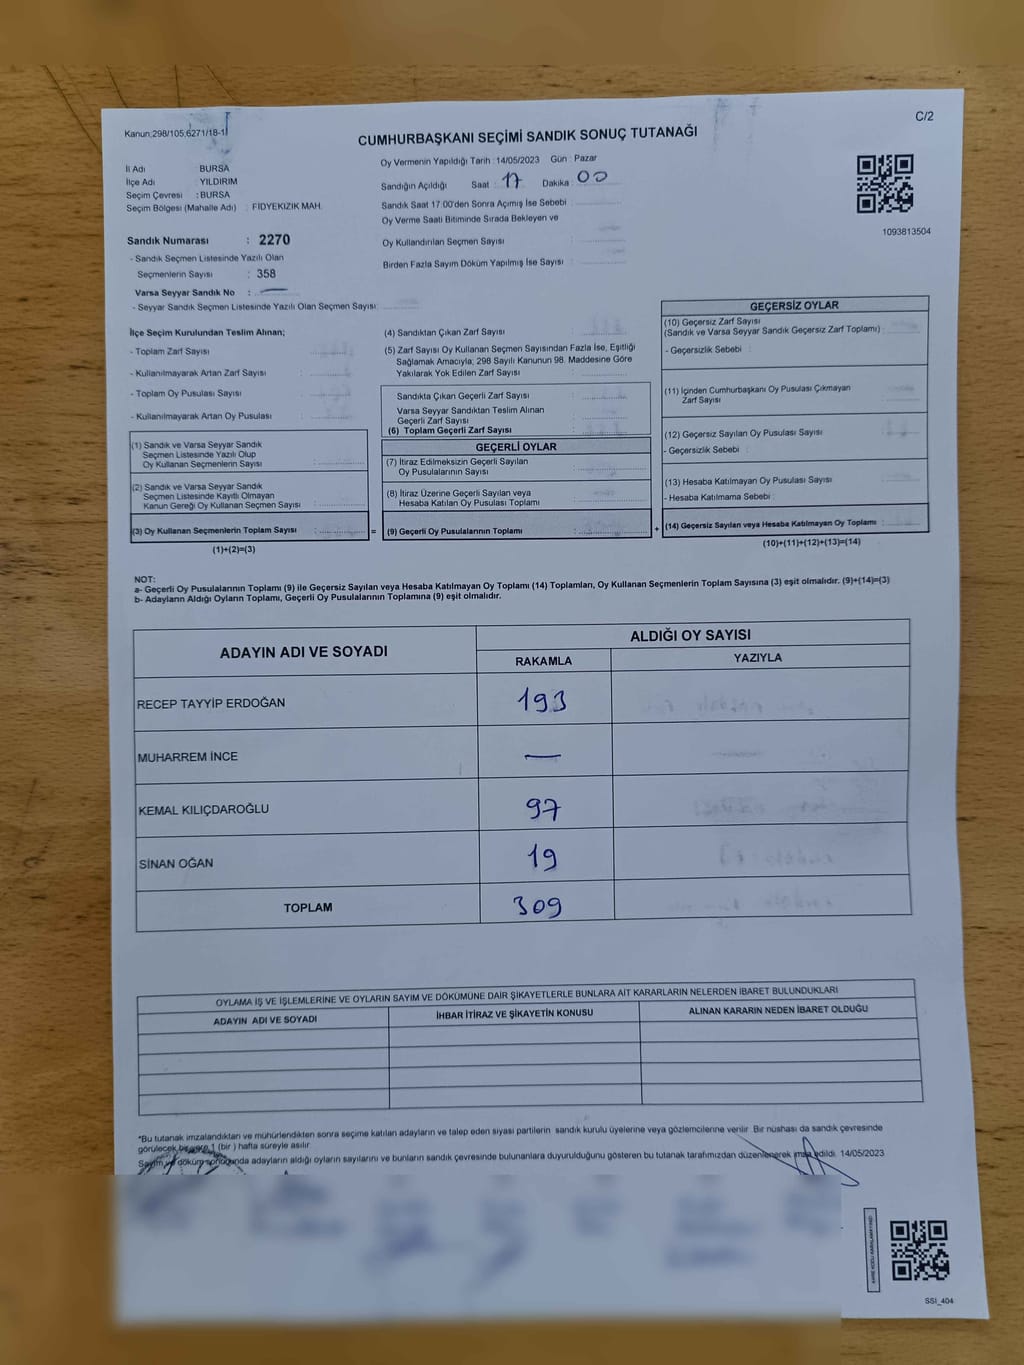 Kanun:298/105,6271/18-1
C/2
CUMHURBAŞKANI SEÇİMİ SANDIK SONUÇ TUTANAĞI
İl Adı BURSA
İlçe Adı YILDIRIM
Seçim Çevresi : BURSA
Seçim Bölgesi (Mahalle Adı) : FİDYEKIZIK MAH.
Oy Vermenin Yapıldığı Tarih : 14/05/2023 Gün : Pazar
Sandığın Açıldığı Saat : 17 Dakika : 00
Sandık Saat 17:00'den Sonra Açımış İse Sebebi :
Oy Verme Saati Bitiminde Sırada Bekleyen ve
Oy Kullandırılan Seçmen Sayısı :
Birden Fazla Sayım Döküm Yapılmış İse Sayısı :
1093813504
Sandık Numarası : 2270
- Sandık Seçmen Listesinde Yazılı Olan
Seçmenlerin Sayısı : 358
Varsa Seyyar Sandık No : —
- Seyyar Sandık Seçmen Listesinde Yazılı Olan Seçmen Sayısı:
İlçe Seçim Kurulundan Teslim Alınan;
- Toplam Zarf Sayısı :
- Kullanılmayarak Artan Zarf Sayısı :
- Toplam Oy Pusulası Sayısı :
- Kullanılmayarak Artan Oy Pusulası :
(1) Sandık ve Varsa Seyyar Sandık
Seçmen Listesinde Yazılı Olup
Oy Kullanan Seçmenlerin Sayısı :
(2) Sandık ve Varsa Seyyar Sandık
Seçmen Listesinde Kayıtlı Olmayan
Kanun Gereği Oy Kullanan Seçmen Sayısı :
(3) Oy Kullanan Seçmenlerin Toplam Sayısı :
(1)+(2)=(3)
(4) Sandıktan Çıkan Zarf Sayısı :
(5) Zarf Sayısı Oy Kullanan Seçmen Sayısından Fazla İse, Eşitliği
Sağlamak Amacıyla; 298 Sayılı Kanunun 98. Maddesine Göre
Yakılarak Yok Edilen Zarf Sayısı :
Sandıkta Çıkan Geçerli Zarf Sayısı :
Varsa Seyyar Sandıktan Teslim Alınan
Geçerli Zarf Sayısı :
(6) Toplam Geçerli Zarf Sayısı :
GEÇERLİ OYLAR
(7) İtiraz Edilmeksizin Geçerli Sayılan
Oy Pusulalarının Sayısı :
(8) İtiraz Üzerine Geçerli Sayılan veya
Hesaba Katılan Oy Pusulası Toplamı :
= (9) Geçerli Oy Pusulalarının Toplamı :
GEÇERSİZ OYLAR
(10) Geçersiz Zarf Sayısı
(Sandık ve Varsa Seyyar Sandık Geçersiz Zarf Toplamı) :
- Geçersizlik Sebebi :
(11) İçinden Cumhurbaşkanı Oy Pusulası Çıkmayan
Zarf Sayısı :
(12) Geçersiz Sayılan Oy Pusulası Sayısı :
- Geçersizlik Sebebi :
(13) Hesaba Katılmayan Oy Pusulası Sayısı :
- Hesaba Katılmama Sebebi :
+ (14) Geçersiz Sayılan veya Hesaba Katılmayan Oy Toplamı :
(10)+(11)+(12)+(13)=(14)
NOT:
a- Geçerli Oy Pusulalarının Toplamı (9) ile Geçersiz Sayılan veya Hesaba Katılmayan Oy Toplamı (14) Toplamları, Oy Kullanan Seçmenlerin Toplam Sayısına (3) eşit olmalıdır. (9)+(14)=(3)
b- Adayların Aldığı Oyların Toplamı, Geçerli Oy Pusulalarının Toplamına (9) eşit olmalıdır.
ADAYIN ADI VE SOYADI
ALDIĞI OY SAYISI
RAKAMLA YAZIYLA
RECEP TAYYİP ERDOĞAN 193
MUHARREM İNCE —
KEMAL KILIÇDAROĞLU 97
SİNAN OĞAN 19
TOPLAM 309
OYLAMA İŞ VE İŞLEMLERİNE VE OYLARIN SAYIM VE DÖKÜMÜNE DAİR ŞİKAYETLERLE BUNLARA AİT KARARLARIN NELERDEN İBARET BULUNDUKLARI
ADAYIN ADI VE SOYADI İHBAR İTİRAZ VE ŞİKAYETİN KONUSU ALINAN KARARIN NEDEN İBARET OLDUĞU
*Bu tutanak imzalandıktan ve mühürlendikten sonra seçime katılan adayların ve talep eden siyasi partilerin sandık kurulu üyelerine veya gözlemcilerine verilir. Bir nüshası da sandık çevresinde
görülecek bir yere 1 (bir ) hafta süreyle asılır.
Sayım ve döküm sonucunda adayların aldığı oyların sayılarını ve bunların sandık çevresinde bulunanlara duyurulduğunu gösteren bu tutanak tarafımızdan düzenlenerek imza edildi. 14/05/2023
SSI_404